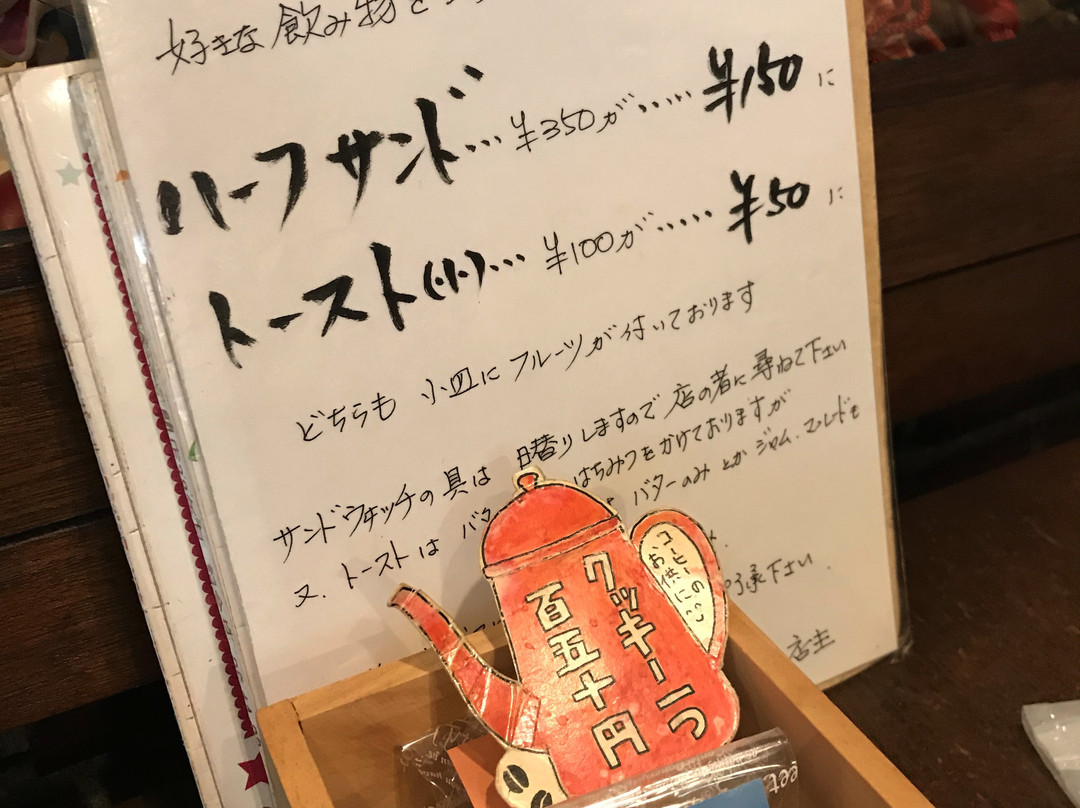 好きな飲み物を
ハーフサンド…¥350が……¥150に
トースト(小)…¥100が……¥50に
どちらも 小皿に フルーツが付いております
サンドウィッチの具は 日替りしますので 店の者に尋ねて下さい
又、トーストは バター はちみつをかけておりますが
バターのみ とか ジャム、マーマレードも
了承下さい。
店主
クッキー一つ
百五十円
コーヒーの
お供に